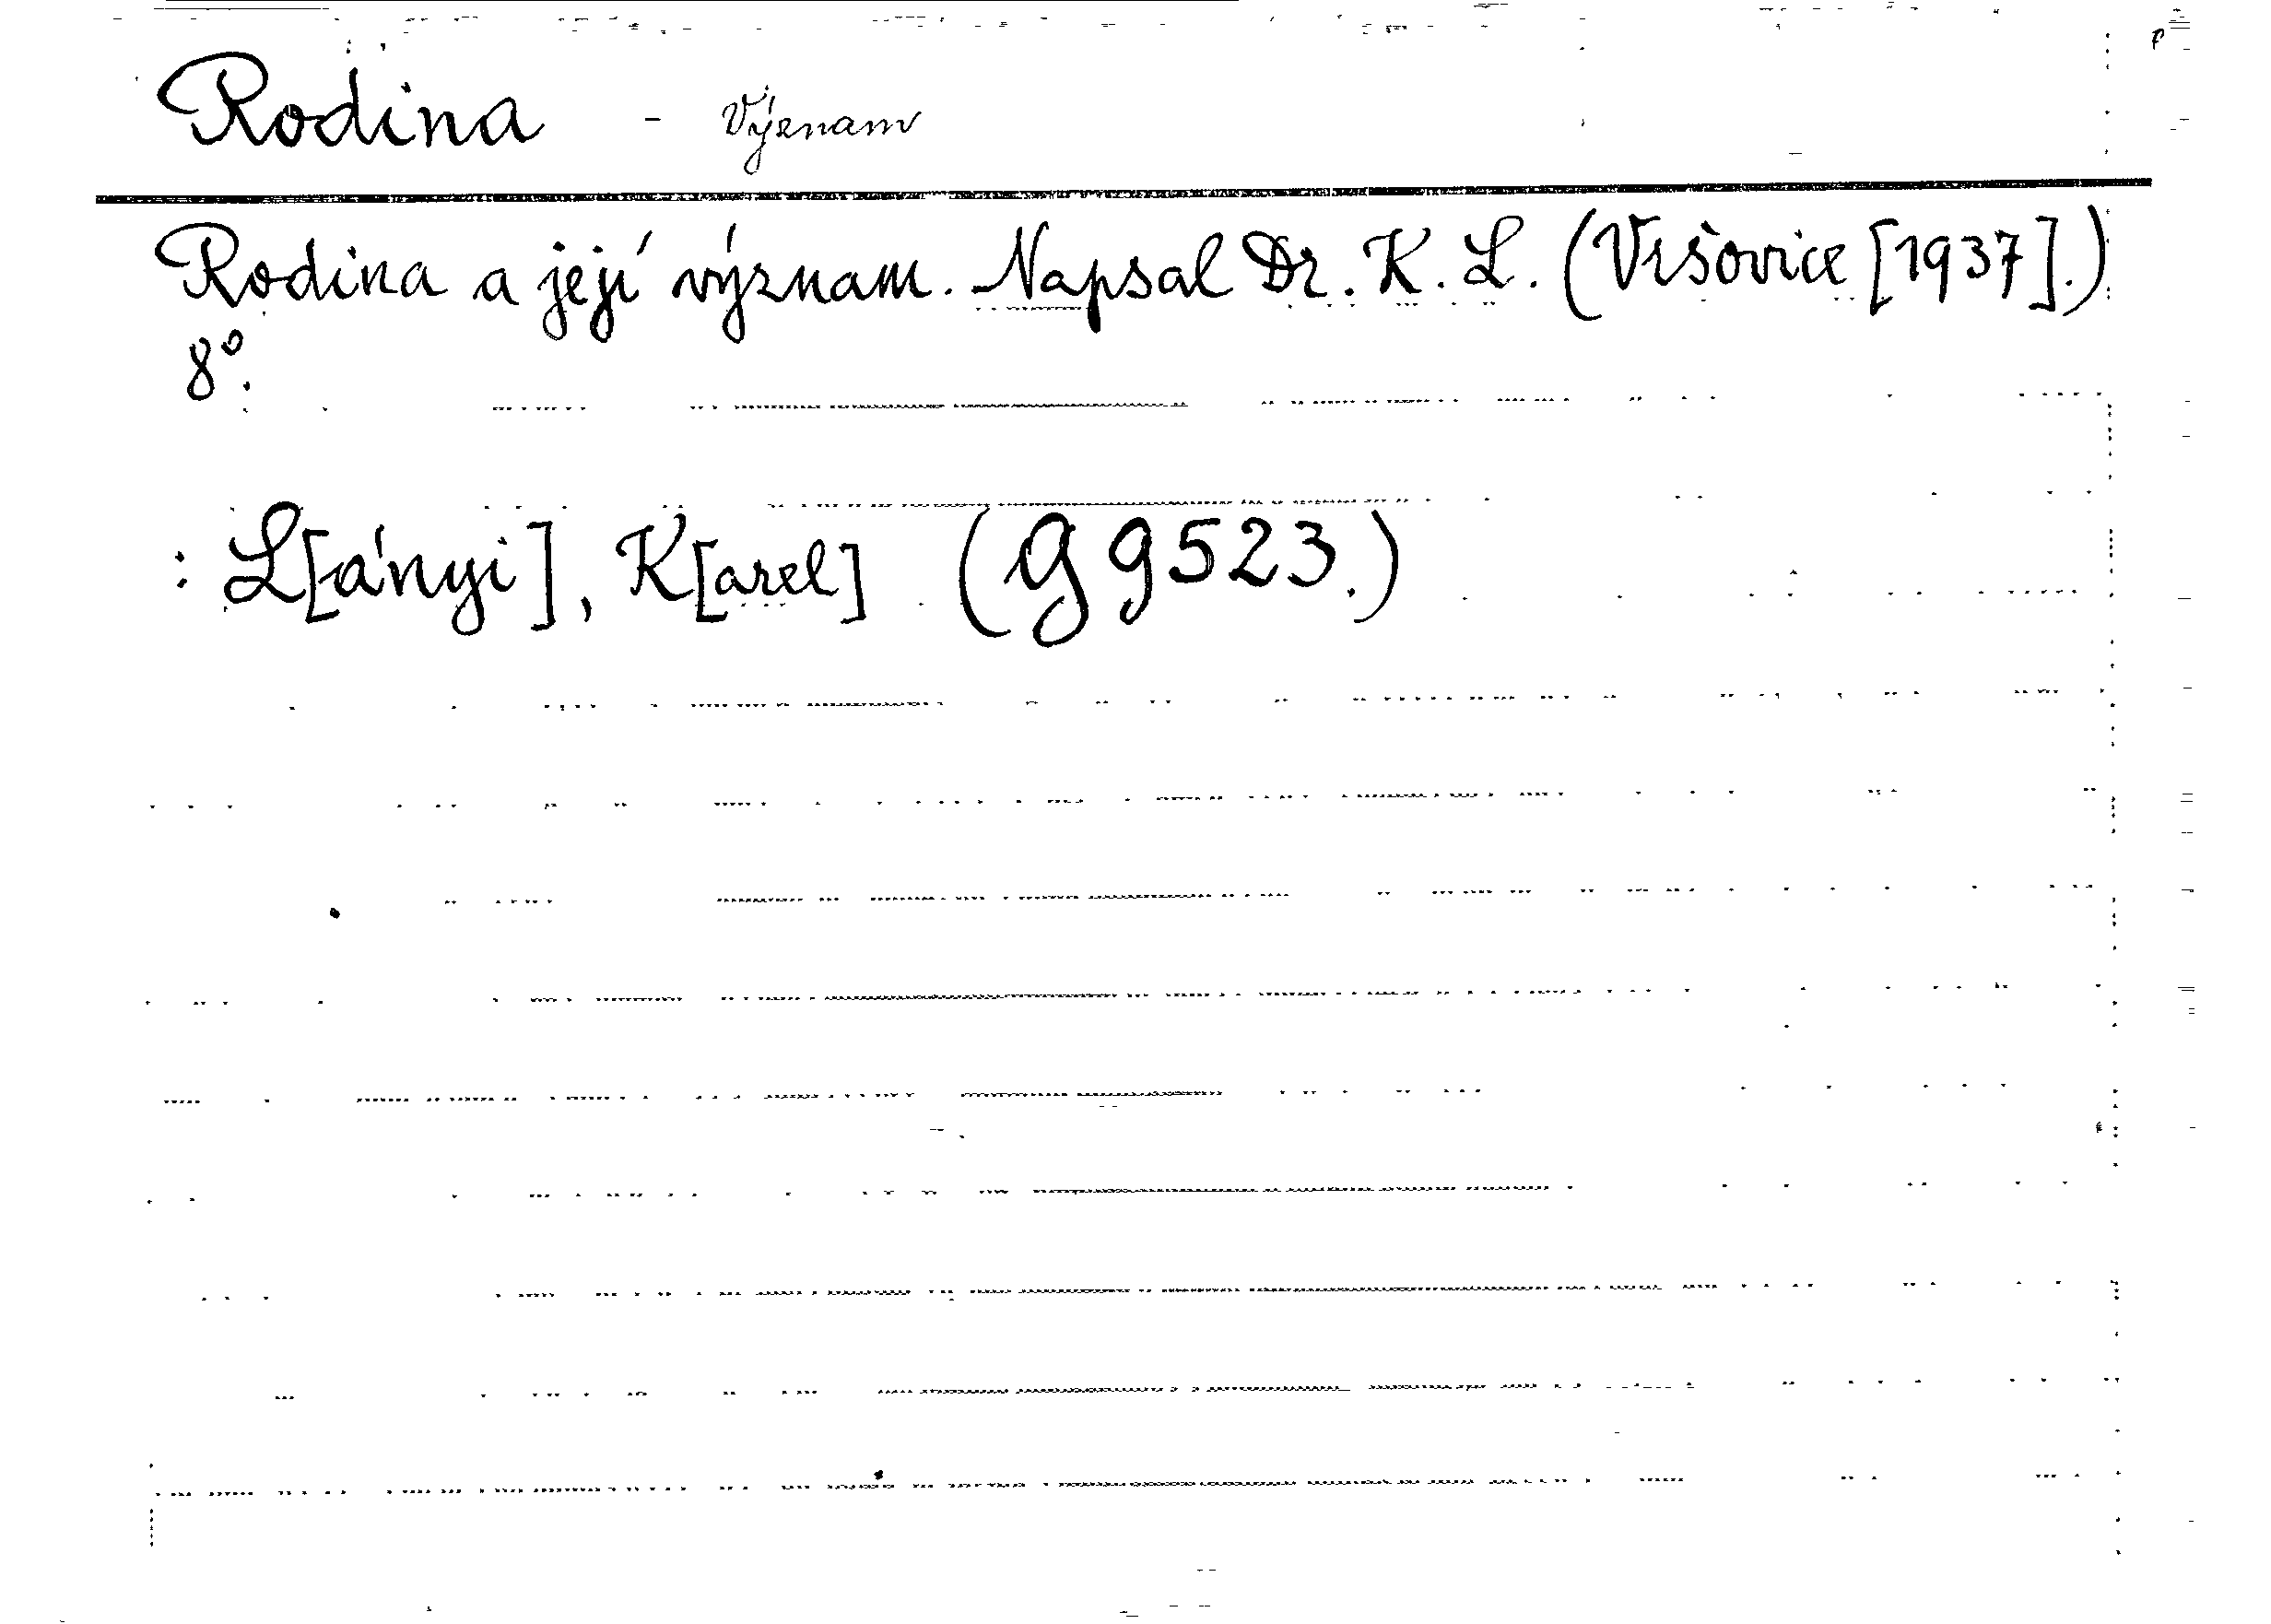 Rodina - Význam
Rodina a její význam. Napsal Dr. K. L. (Vršovice [1937].)
8°.
: L[ányi], K[arel] (G 9523.)